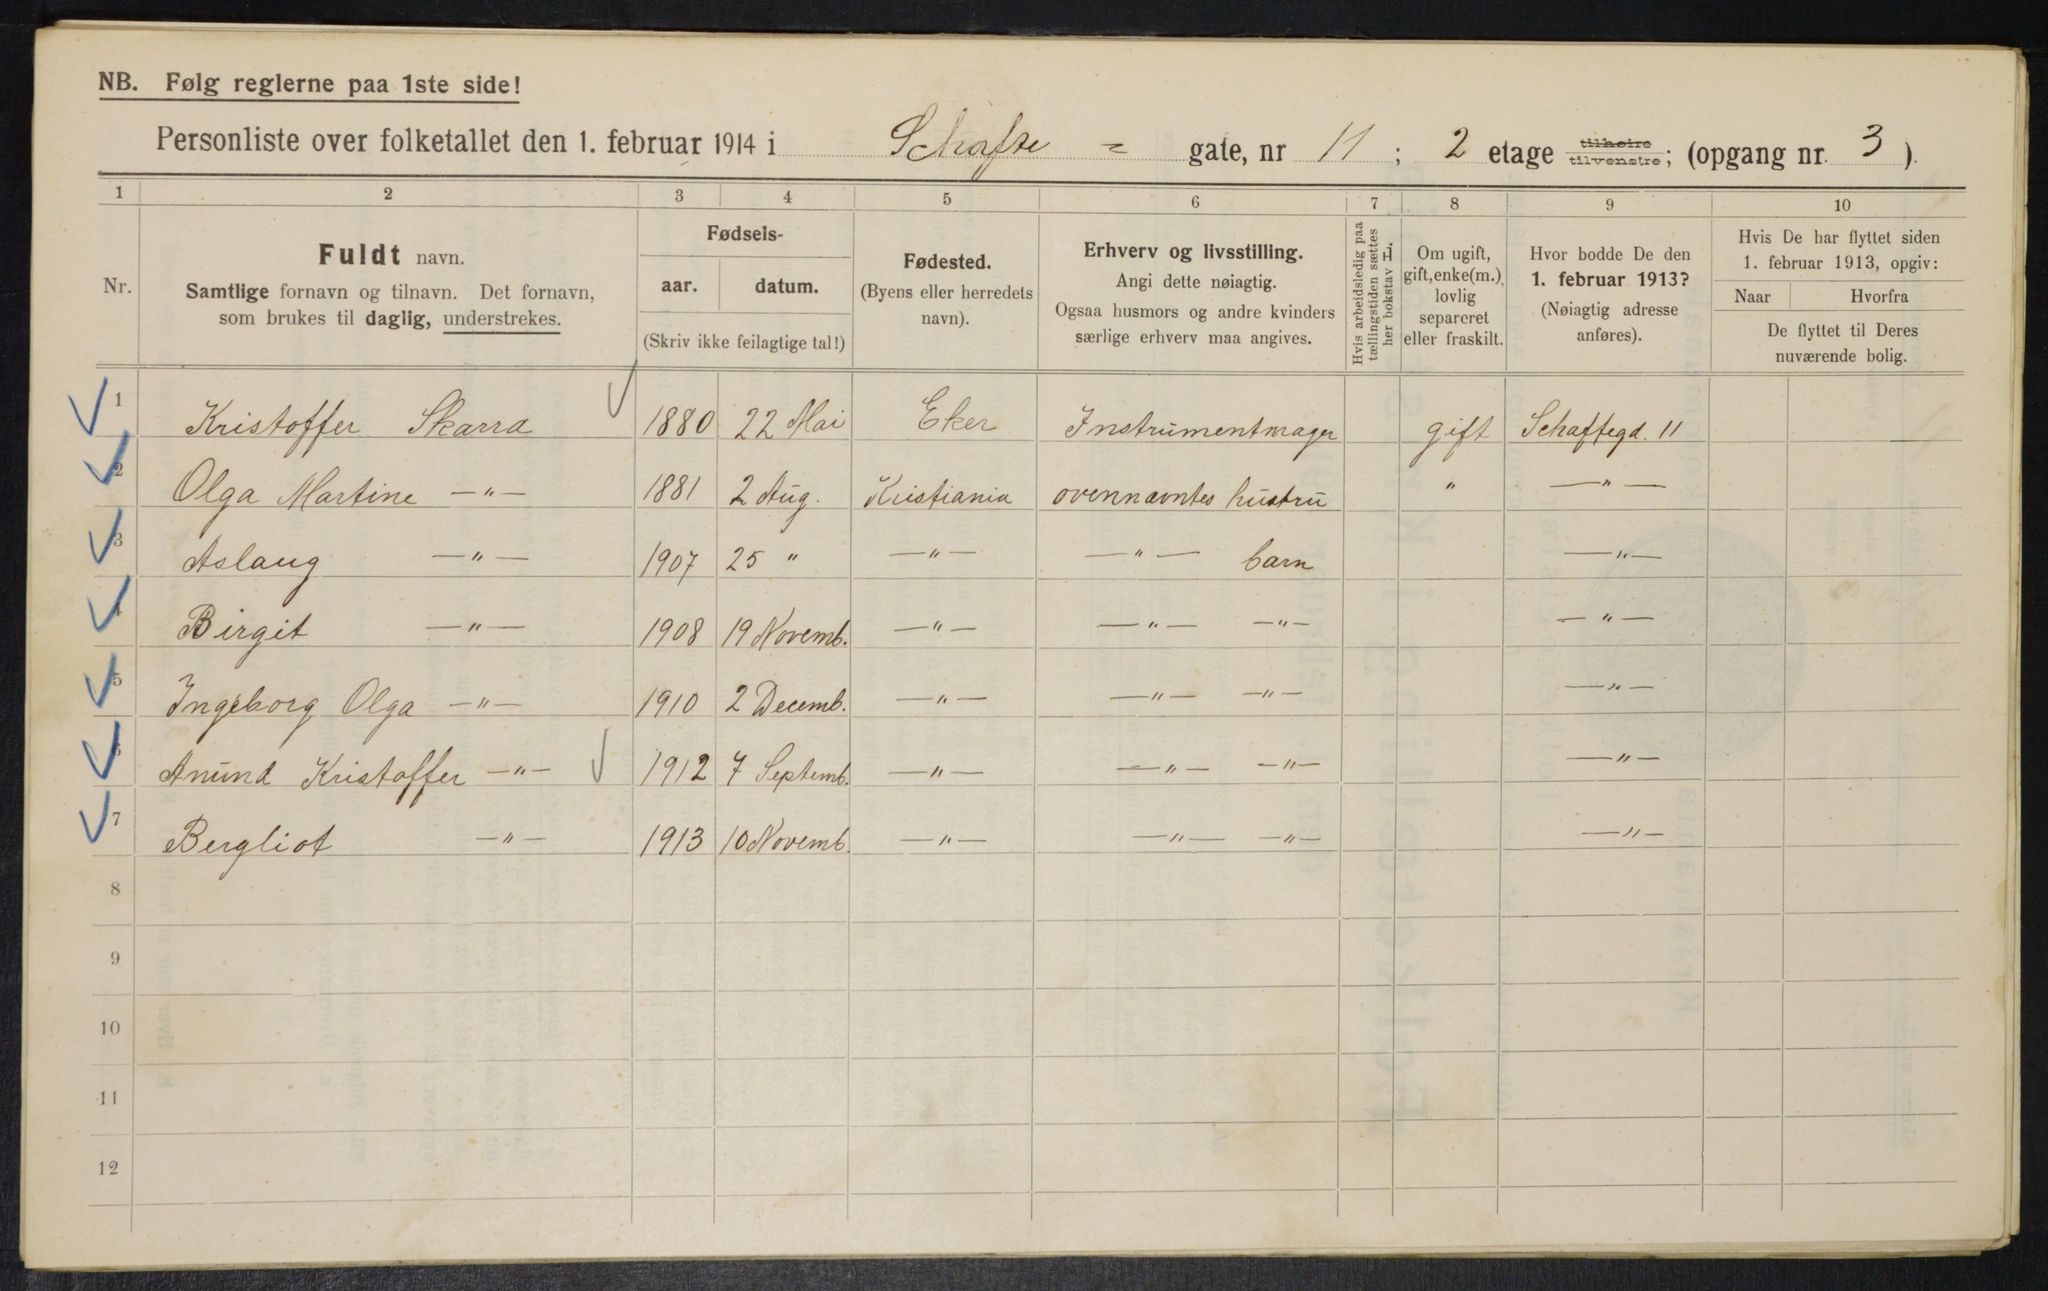 NB. Følg reglerne paa 1ste side!
Personliste over folketallet den 1. februar 1914 i Schafte = gate, nr 11 ; 2 etage tilhøire tilvenstre ; (opgang nr. 3 )
1 2 3 4 5 6 7 8 9 10
Nr.
Fuldt navn.
Samtlige fornavn og tilnavn. Det fornavn,
som brukes til daglig, understrekes.
Fødsels-
aar. datum.
(Skriv ikke feilagtige tal!)
Fødested.
(Byens eller herredets
navn).
Erhverv og livsstilling.
Angi dette nøiagtig.
Ogsaa husmors og andre kvinders
særlige erhverv maa angives.
Hvis arbeidsledig paa
tællingstiden sættes
her bokstav L.
Om ugift,
gift, enke(m.),
lovlig
separeret
eller fraskilt.
Hvor bodde De den
1. februar 1913?
(Nøiagtig adresse
anføres).
Hvis De har flyttet siden
1. februar 1913, opgiv:
Naar Hvorfra
De flyttet til Deres
nuværende bolig.
1 Kristoffer Skarra 1880 22 Mai Eker Instrumentmager gift Schaftegd. 11
2 Olga Martine —"— 1881 2 Aug. Kristiania ovennævntes hustru " —"—
3 Aslaug —"— 1907 25 " —"— —"— barn —"—
4 Birgit —"— 1908 19 Novemb. —"— —"— —"— —"—
5 Ingeborg Olga —"— 1910 2 Decemb. —"— —"— —"— —"—
6 Anund Kristoffer —"— 1912 7 Septemb. —"— —"— —"— —"—
7 Bergliot —"— 1913 10 Novemb. —"— —"— —"— —"—
8
9
10
11
12